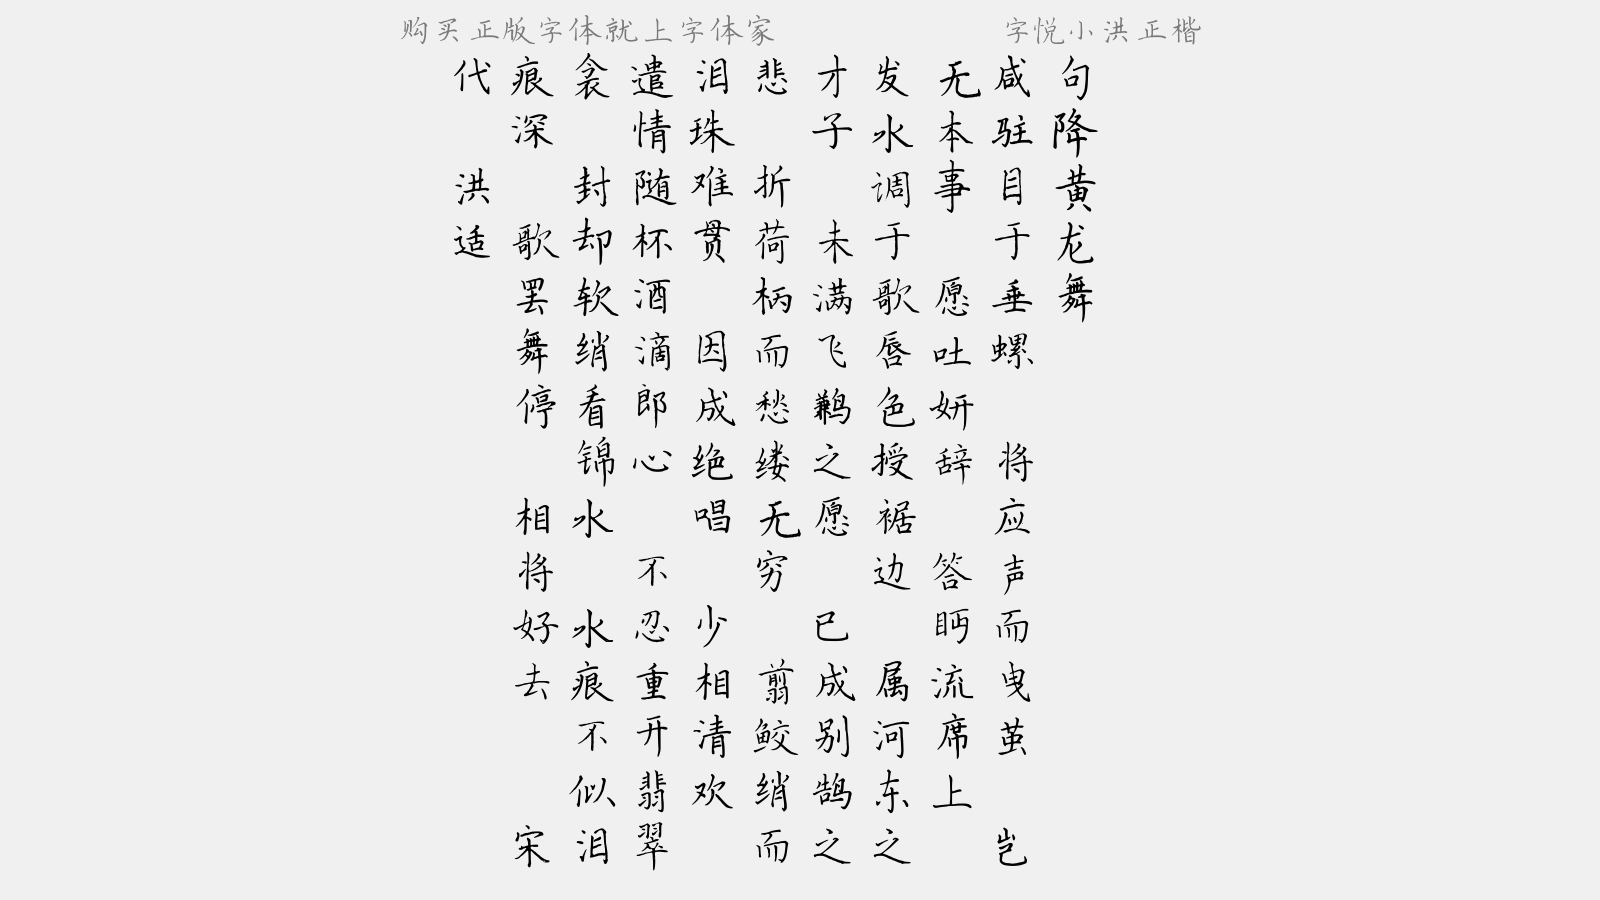 购买正版字体就上字体家
字悦小洪正楷
句降黄龙舞
咸驻目于垂螺 将应声而曳茧 岂
无本事 愿吐妍辞 答眄流席上
发水调于歌唇色授裾边 属河东之
才子 未满飞鹣之愿 已成别鹄之
悲 折荷柄而愁缕无穷 翦鲛绡而
泪珠难贯 因成绝唱 少相清欢
遣情随杯酒滴郎心 不忍重开翡翠
衾 封却软绡看锦水 水痕不似泪
痕深 歌罢舞停 相将好去 宋
代 洪适